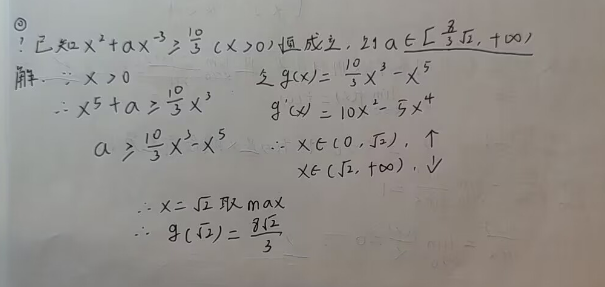 ?已知x²+ax⁻³≥10/3(x>0)恒成立,则a∈[8/3√2,+∞)
解:∵x>0
∴x⁵+a≥10/3x³
a≥10/3x³-x⁵
立g(x)=10/3x³-x⁵
g'(x)=10x²-5x⁴
∴x∈(0,√2),↑
x∈(√2,+∞),↓
∴x=√2取max
∴g(√2)=8√2/3